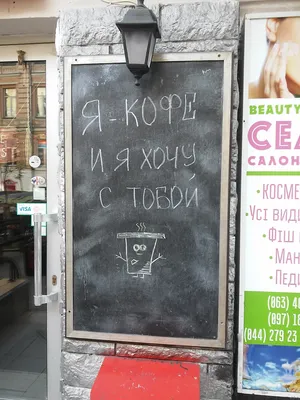 Я - КОФЕ
И Я ХОЧУ
С ТОБОЙ
VISA
BEAUTY
САЛОН
• КОСМЕ
• УСІ ВИД
• ФІШ
• МАН
• ПЕДИ
(063) 4
(097) 1
(044) 279 23